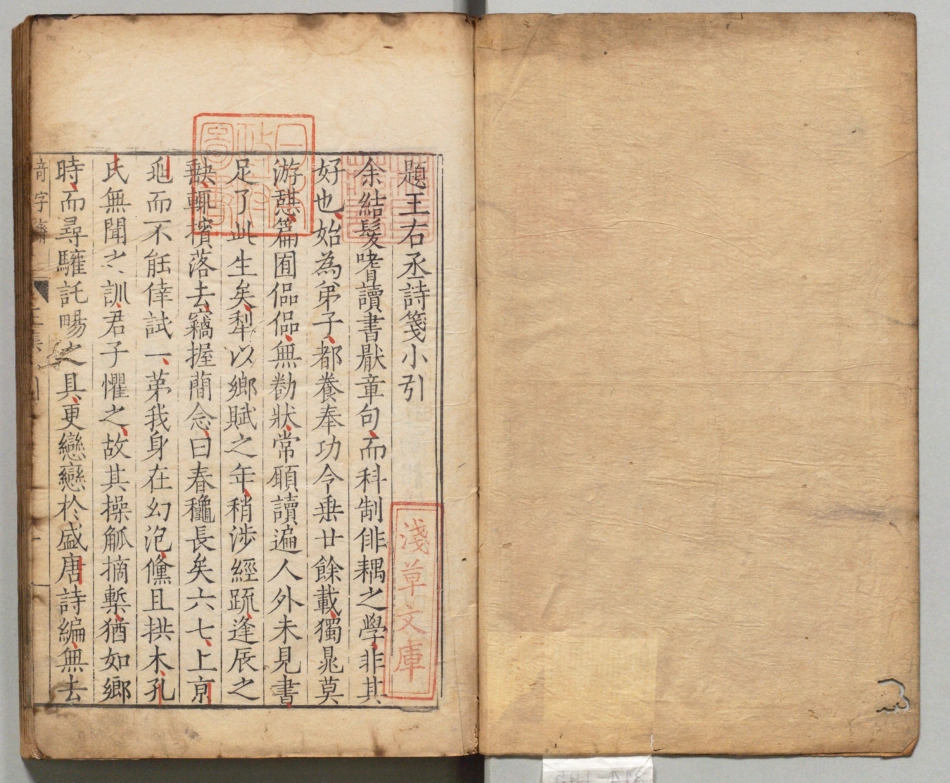 題王右丞詩箋小引
余結髮嗜讀書厭章句而科制俳耦之學非其
好也始為弟子都養奉功令垂廿餘載獨晁莫
游憩篇囿偘偘無勌狀常願讀遍人外未見書
足了此生矣犁以鄉賦之年稍涉經䟽逢辰之
輒擯落去竊握蕳念曰春龝長矣六七上京
而不能倖試一第我身在幻泡儻且拱木孔
氏無聞之訓君子懼之故其操觚摘槧猶如鄉
時而尋驩託暢之具更戀戀於盛唐詩編無去
淺草文庫